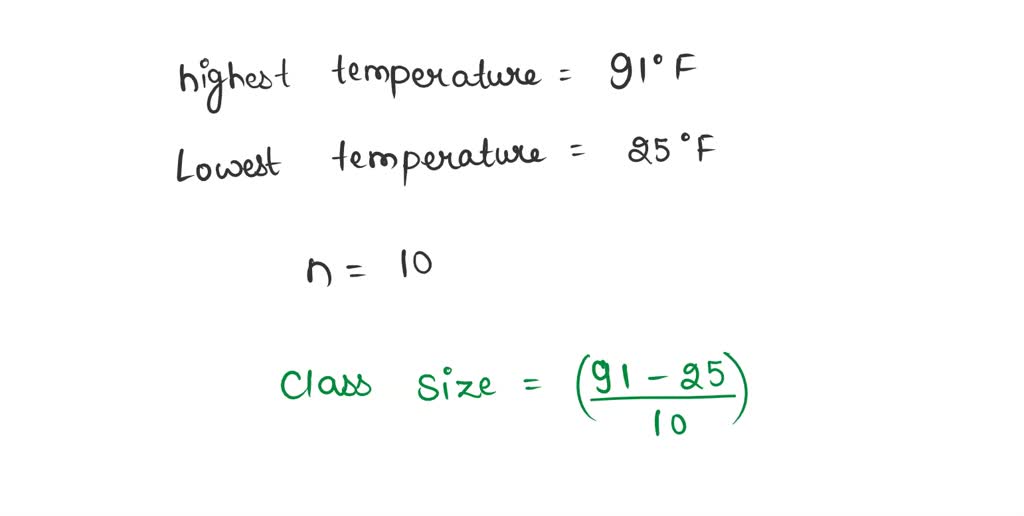 highest temperature = 91°F
Lowest temperature = 25°F
n = 10
Class size = (91 - 25 / 10)